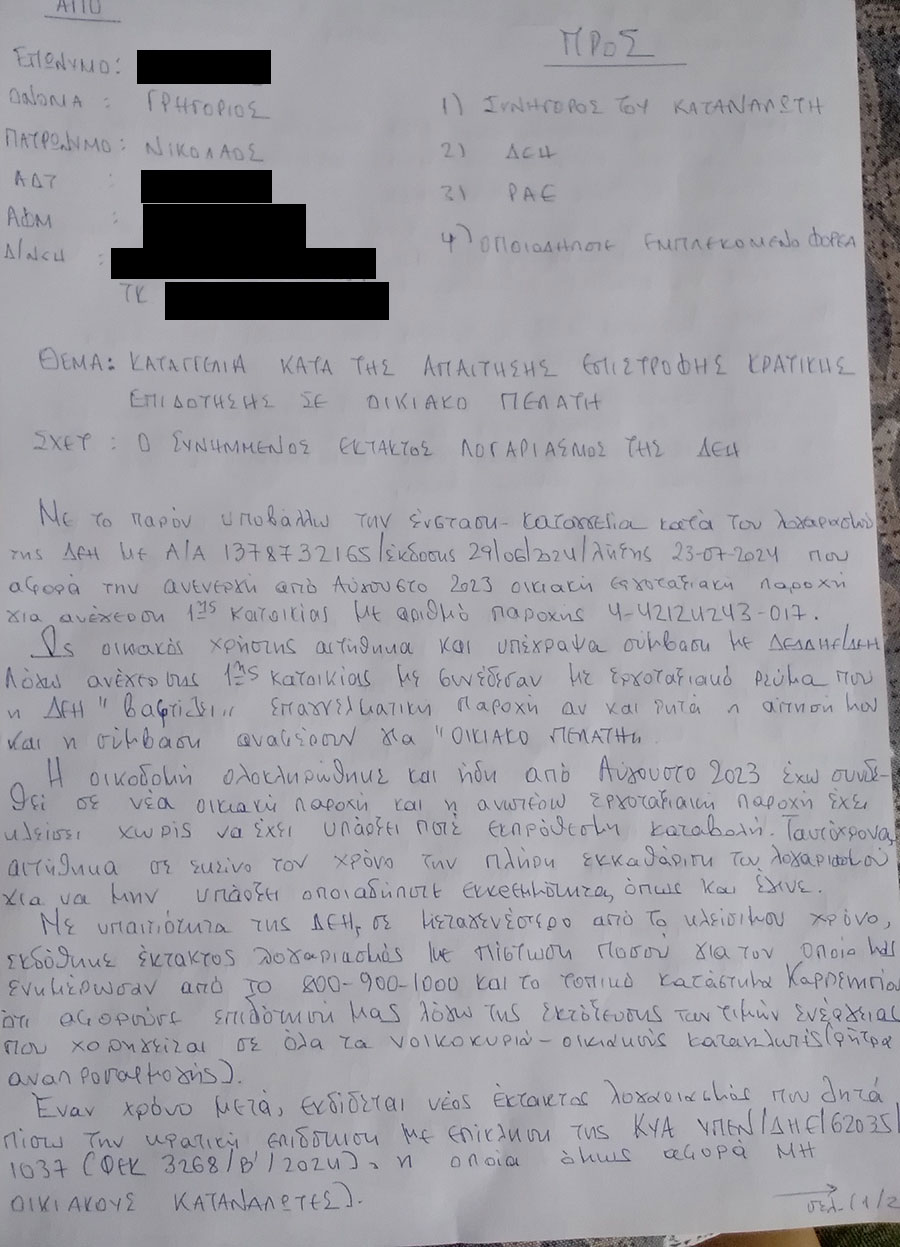 ΑΠΟ
ΠΡΟΣ
ΕΠΩΝΥΜΟ:
ΟΝΟΜΑ : ΓΡΗΓΟΡΙΟΣ
ΠΑΤΡΩΝΥΜΟ: ΝΙΚΟΛΑΟΣ
ΑΔΤ :
ΑΦΜ :
Δ/ΝΣΗ :
ΤΚ
1) ΣΥΝΗΓΟΡΟΣ ΤΟΥ ΚΑΤΑΝΑΛΩΤΗ
2) ΔΕΗ
3) ΡΑΕ
4) ΟΠΟΙΟΔΗΠΟΤΕ ΕΜΠΛΕΚΟΜΕΝΟ ΦΟΡΕΑ
ΘΕΜΑ: ΚΑΤΑΓΓΕΛΙΑ ΚΑΤΑ ΤΗΣ ΑΠΑΙΤΗΣΗΣ ΕΠΙΣΤΡΟΦΗΣ ΚΡΑΤΙΚΗΣ
ΕΠΙΔΟΤΗΣΗΣ ΣΕ ΟΙΚΙΑΚΟ ΠΕΛΑΤΗ
ΣΧΕΤ : Ο ΣΥΝΗΜΜΕΝΟΣ ΕΚΤΑΚΤΟΣ ΛΟΓΑΡΙΑΣΜΟΣ ΤΗΣ ΔΕΗ
Με το παρόν υποβάλλω την ένσταση-καταγγελία κατά του λογαριασμού
της ΔΕΗ με Α/Α 1378732165/έκδοσης 29/06/2024/λήξης 23-07-2024 που
αφορά την ανενεργή από Αύγουστο 2023 οικιακή εργοταξιακή παροχή
για ανέγερση 1ης κατοικίας με αριθμό παροχής 4-42124243-017.
Ως οικιακός χρήστης αιτήθηκα και υπέγραψα σύμβαση με ΔΕΔΔΗΕ/ΔΕΗ
Λόγω ανέγερσης 1ης κατοικίας με συνέδεσαν με εργοταξιακό ρεύμα που
η ΔΕΗ "βαφτίζει" επαγγελματική παροχή αν και ρητά η αίτησή μου
και η σύμβαση αναφέρουν για "ΟΙΚΙΑΚΟ ΠΕΛΑΤΗ".
Η οικοδομή ολοκληρώθηκε και ήδη από Αύγουστο 2023 έχω συνδε-
θεί σε νέα οικιακή παροχή και η ανωτέρω εργοταξιακή παροχή έχει
κλείσει χωρίς να έχει υπάρξει ποτέ εκπρόθεσμη καταβολή. Ταυτόχρονα,
αιτήθηκα σε εκείνο τον χρόνο την πλήρη εκκαθάριση του λογαριασμού
για να μην υπάρξει οποιαδήποτε εκκρεμότητα, όπως και έγινε.
Με υπαιτιότητα της ΔΕΗ, σε μεταγενέστερο από το κλείσιμο χρόνο,
εκδόθηκε έκτακτος λογαριασμός με πίστωση ποσού για τον οποίο μας
ενημέρωσαν από το 800-900-1000 και το τοπικό κατάστημα Καρπενησίου
ότι αφορούσε επιδότησή μας λόγω της εκτόξευσης των τιμών ενέργειας
που χορηγείται σε όλα τα νοικοκυριά-οικιακούς καταναλωτές (ρήτρα
αναπροσαρμογής).
Έναν χρόνο μετά, εκδίδεται νέος έκτακτος λογαριασμός που ζητά
πίσω την κρατική επιδότηση με επίκληση της ΚΥΑ ΥΠΕΝ/ΔΗΕ/62035/
1037 (ΦΕΚ 3268/Β'/2024), η οποία όμως αφορά ΜΗ
ΟΙΚΙΑΚΟΥΣ ΚΑΤΑΝΑΛΩΤΕΣ).
σελ (1/2